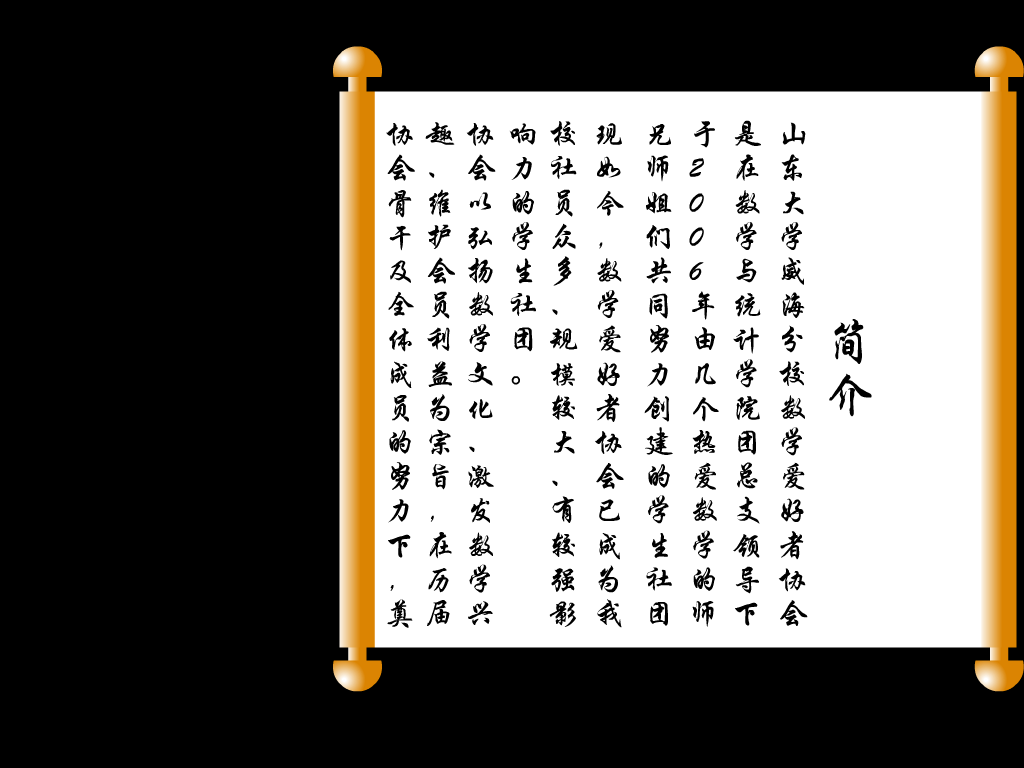 简介
山东大学威海分校数学爱好者协会
是在数学与统计学院团总支领导下
于2006年由几个热爱数学的师
兄师姐们共同努力创建的学生社团
现如今，数学爱好者协会已成为我
校社员众多、规模较大、有较强影
响力的学生社团。
协会以弘扬数学文化、激发数学兴
趣、维护会员利益为宗旨，在历届
协会骨干及全体成员的努力下，奠